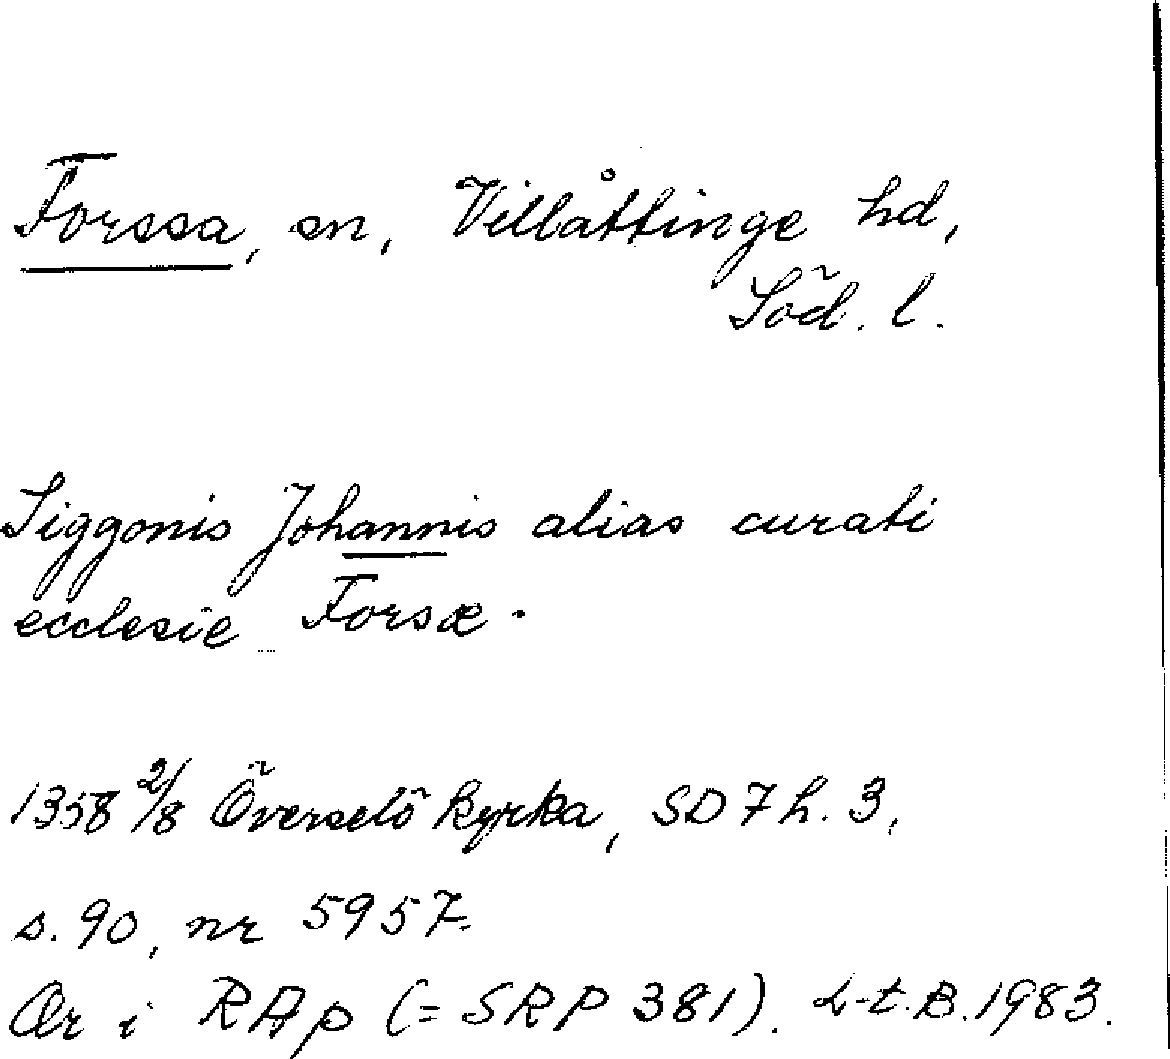 Forssa, sn, Villåttinge hd,
Söd. l.
Siggonis Johannis alias curati
ecclesie Forsæ.
1358 2/8 Överselö kyrka, SD 7 h. 3,
s. 90, nr 5957.
Or i RAp (= SRP 381). L-t.B. 1983.